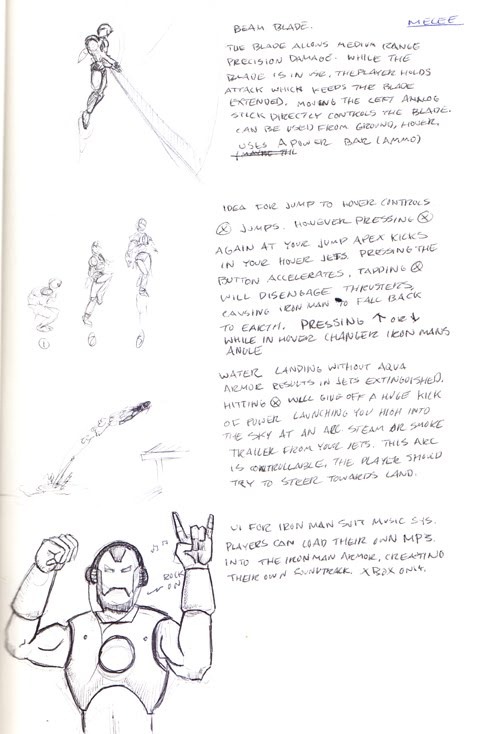 MELEE
BEAM BLADE.
THE BLADE ALLOWS MEDIUM RANGE
PRECISION DAMAGE. WHILE THE
BLADE IS IN USE, THE PLAYER HOLDS
ATTACK WHICH KEEPS THE BLADE
EXTENDED. MOVING THE LEFT ANALOG
STICK DIRECTLY CONTROLS THE BLADE.
CAN BE USED FROM GROUND, HOVER,
USES A POWER BAR (AMMO)
IDEA FOR JUMP TO HOVER CONTROLS
Ⓧ JUMPS. HOWEVER PRESSING Ⓧ
AGAIN AT YOUR JUMP APEX KICKS
IN YOUR HOVER JETS. PRESSING THE
BUTTON ACCELERATES, TAPPING Ⓧ
WILL DISENGAGE THRUSTERS,
CAUSING IRON MAN TO FALL BACK
TO EARTH. PRESSING ↑ OR ↓
WHILE IN HOVER CHANGES IRON MANS
ANGLE
①
②
③
WATER LANDING WITHOUT AQUA
ARMOR RESULTS IN JETS EXTINGUISHED.
HITTING Ⓧ WILL GIVE OFF A HUGE KICK
OF POWER LAUNCHING YOU HIGH INTO
THE SKY AT AN ARC. STEAM OR SMOKE
TRAILER FROM YOUR JETS. THIS ARC
IS CONTROLLABLE, THE PLAYER SHOULD
TRY TO STEER TOWARDS LAND.
UI FOR IRON MAN SUIT MUSIC SYS.
PLAYERS CAN LOAD THEIR OWN MP3.
INTO THE IRONMAN ARMOR, CREATING
THEIR OWN SOUNDTRACK. XBOX ONLY.
ROCK
ON